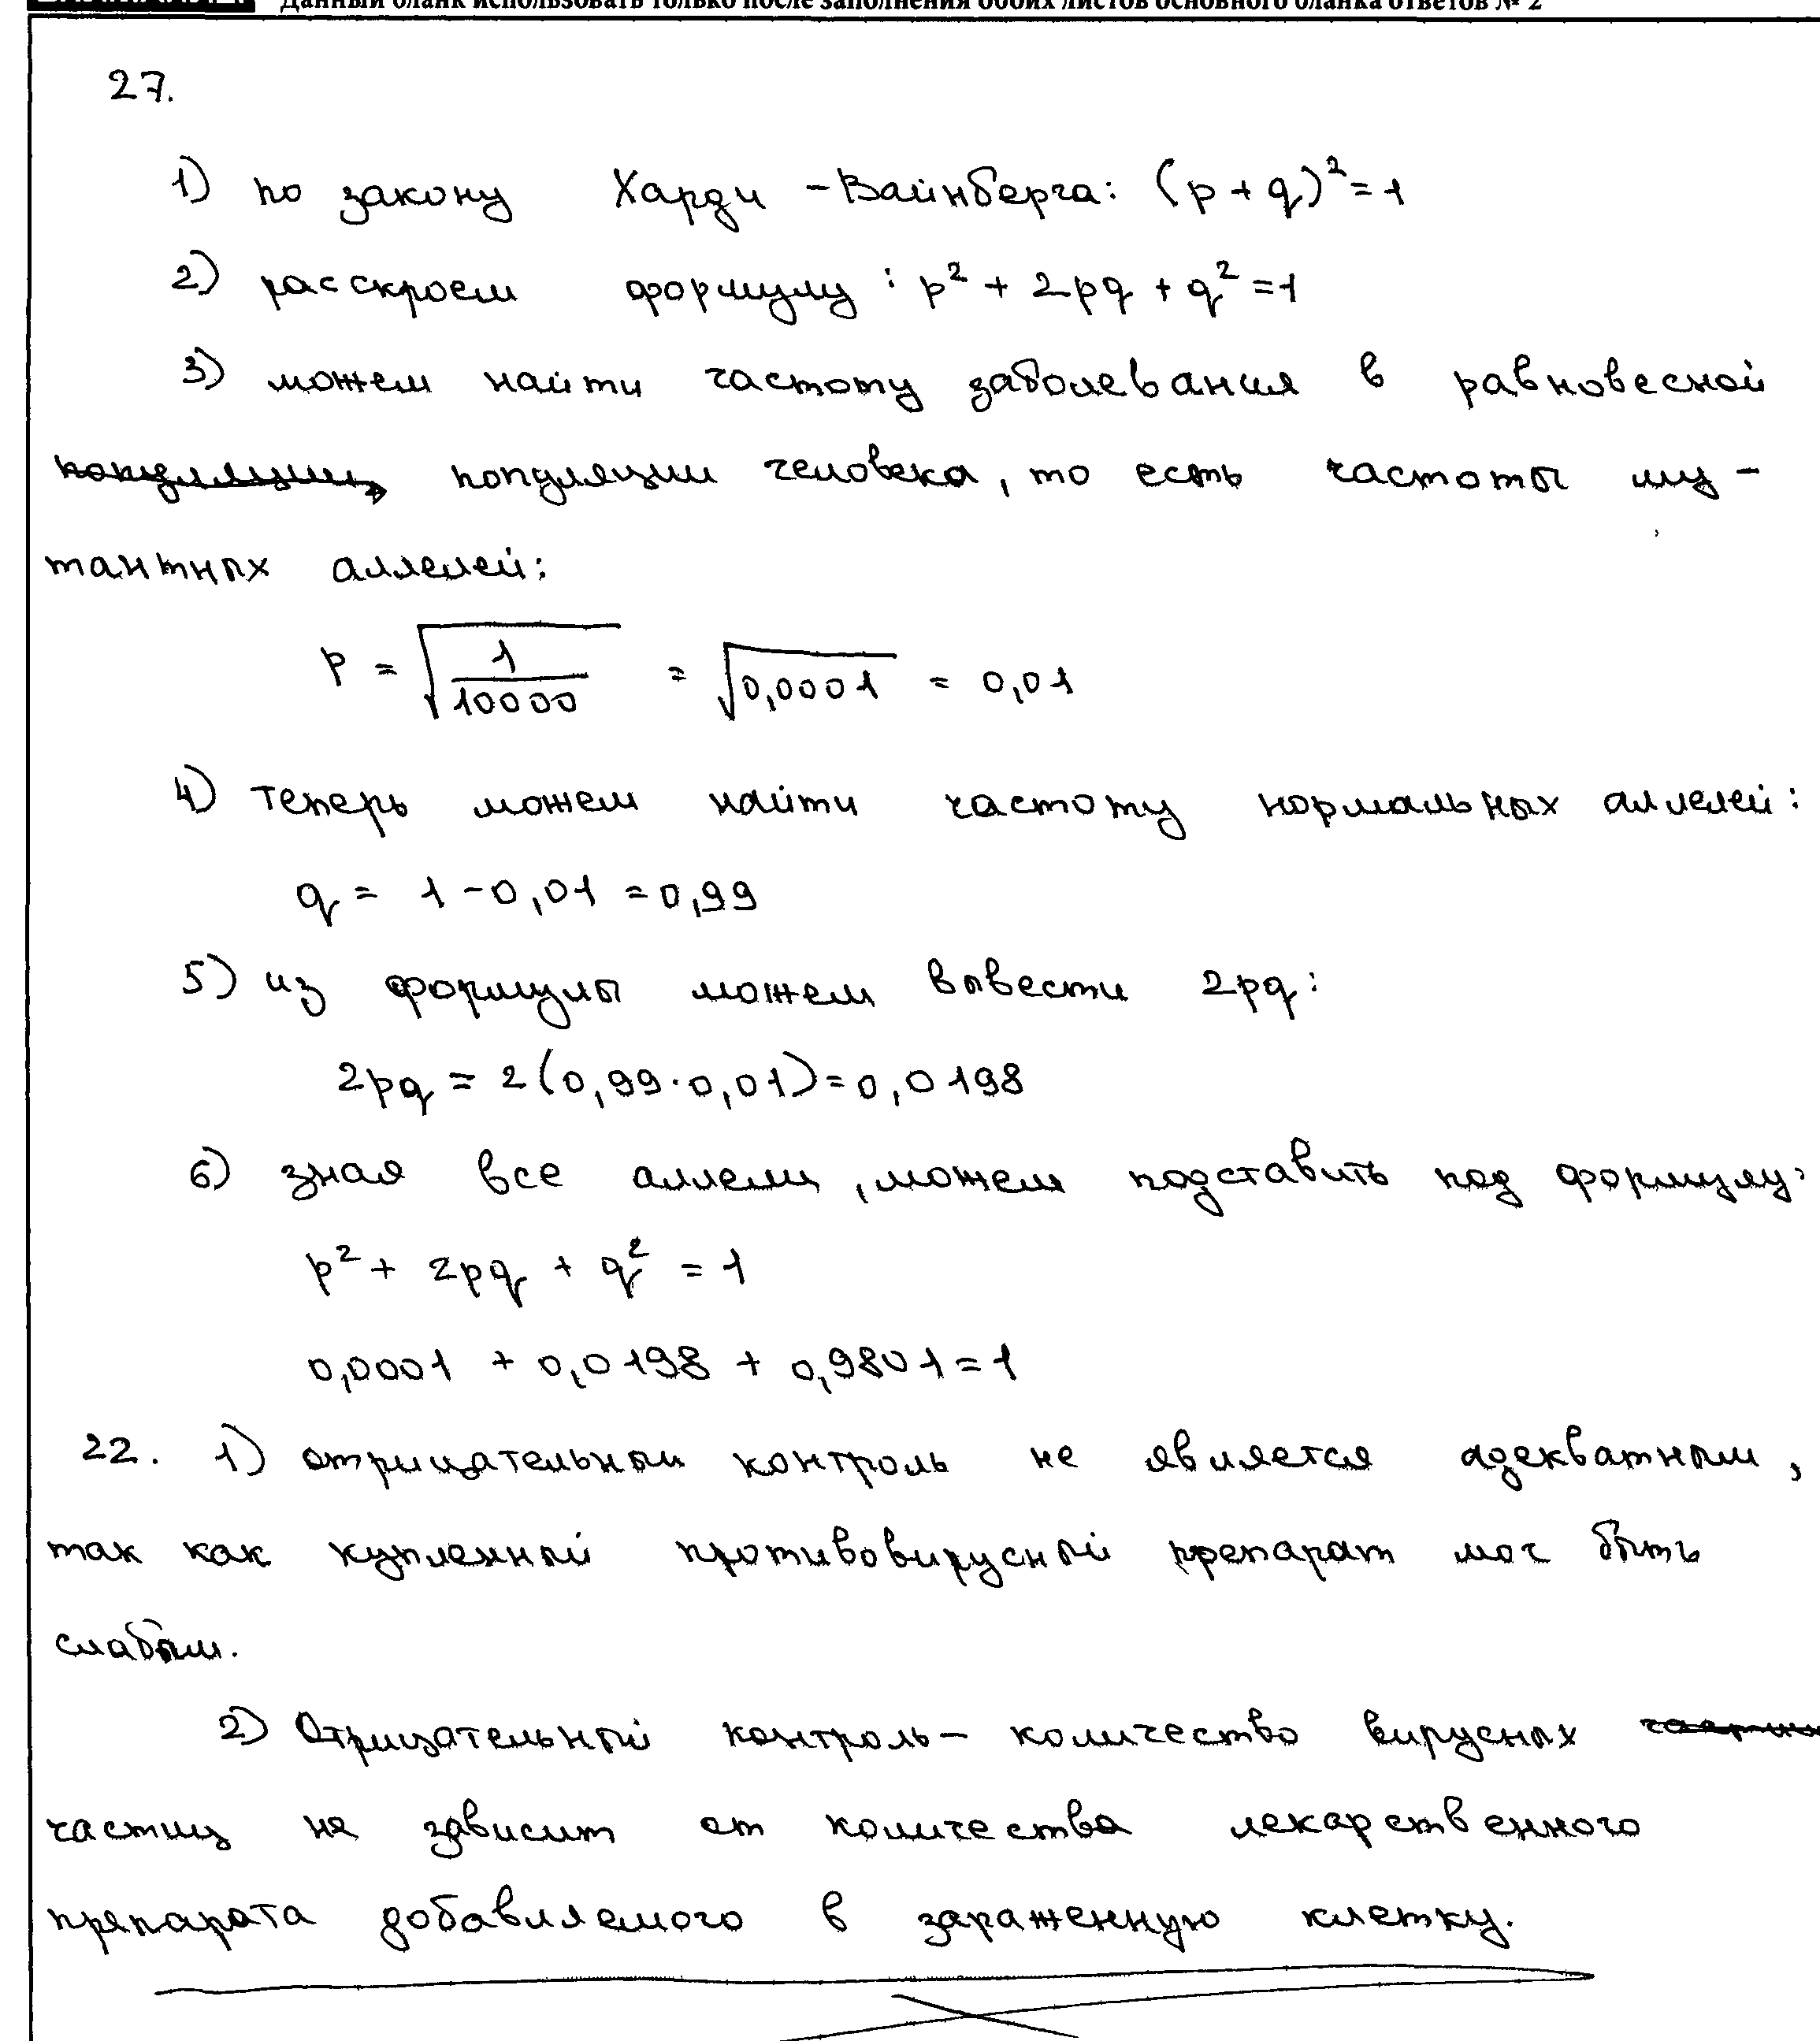 Данный бланк использовать только после заполнения обоих листов основного бланка ответов № 2
27.
1) по закону Харди - Вайнберга: (p + q)² = 1
2) расскроем формулу: p² + 2pq + q² = 1
3) можем найти частоту заболевания в равновесной
популяции человека, то есть частоты му-
тантных аллелей:
p = √(1/10000) = √0,0001 = 0,01
4) теперь можем найти частоту нормальных аллелей:
q = 1 - 0,01 = 0,99
5) из формулы можем вывести 2pq:
2pq = 2(0,99·0,01) = 0,0198
6) зная все аллели, можем подставить под формулу:
p² + 2pq + q² = 1
0,0001 + 0,0198 + 0,9801 = 1
22. 1) отрицательный контроль не является адекватным,
так как купленный противовирусный препарат мог быть
слабым.
2) Отрицательный контроль - количество вирусных
частиц не зависит от количества лекарственного
препарата добавляемого в зараженную клетку.